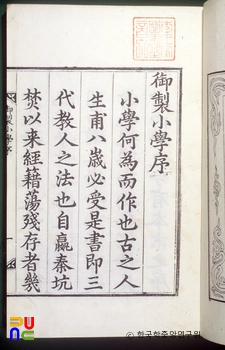 御製小學序
小學何為而作也古之人
生甫八歲必受是書即三
代教人之法也自嬴秦坑
焚以来經籍蕩殘存者幾
御製小學序
한국학중앙연구원